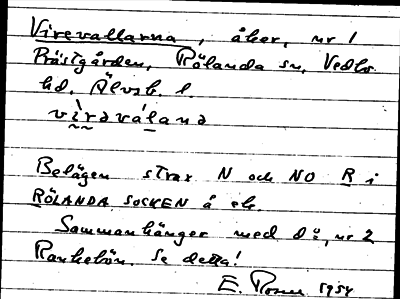 Virevallarna, åker, nr 1
Prästgården, Rölanda sn, Vedbo
hd. Älvsb. l.
vìrəváḷaṇa
Belägen strax N och NO R i
RÖLANDA SOCKEN å ek.
Sammanhänger med d:o, nr 2
Rankebön. Se detta!
E. 1954